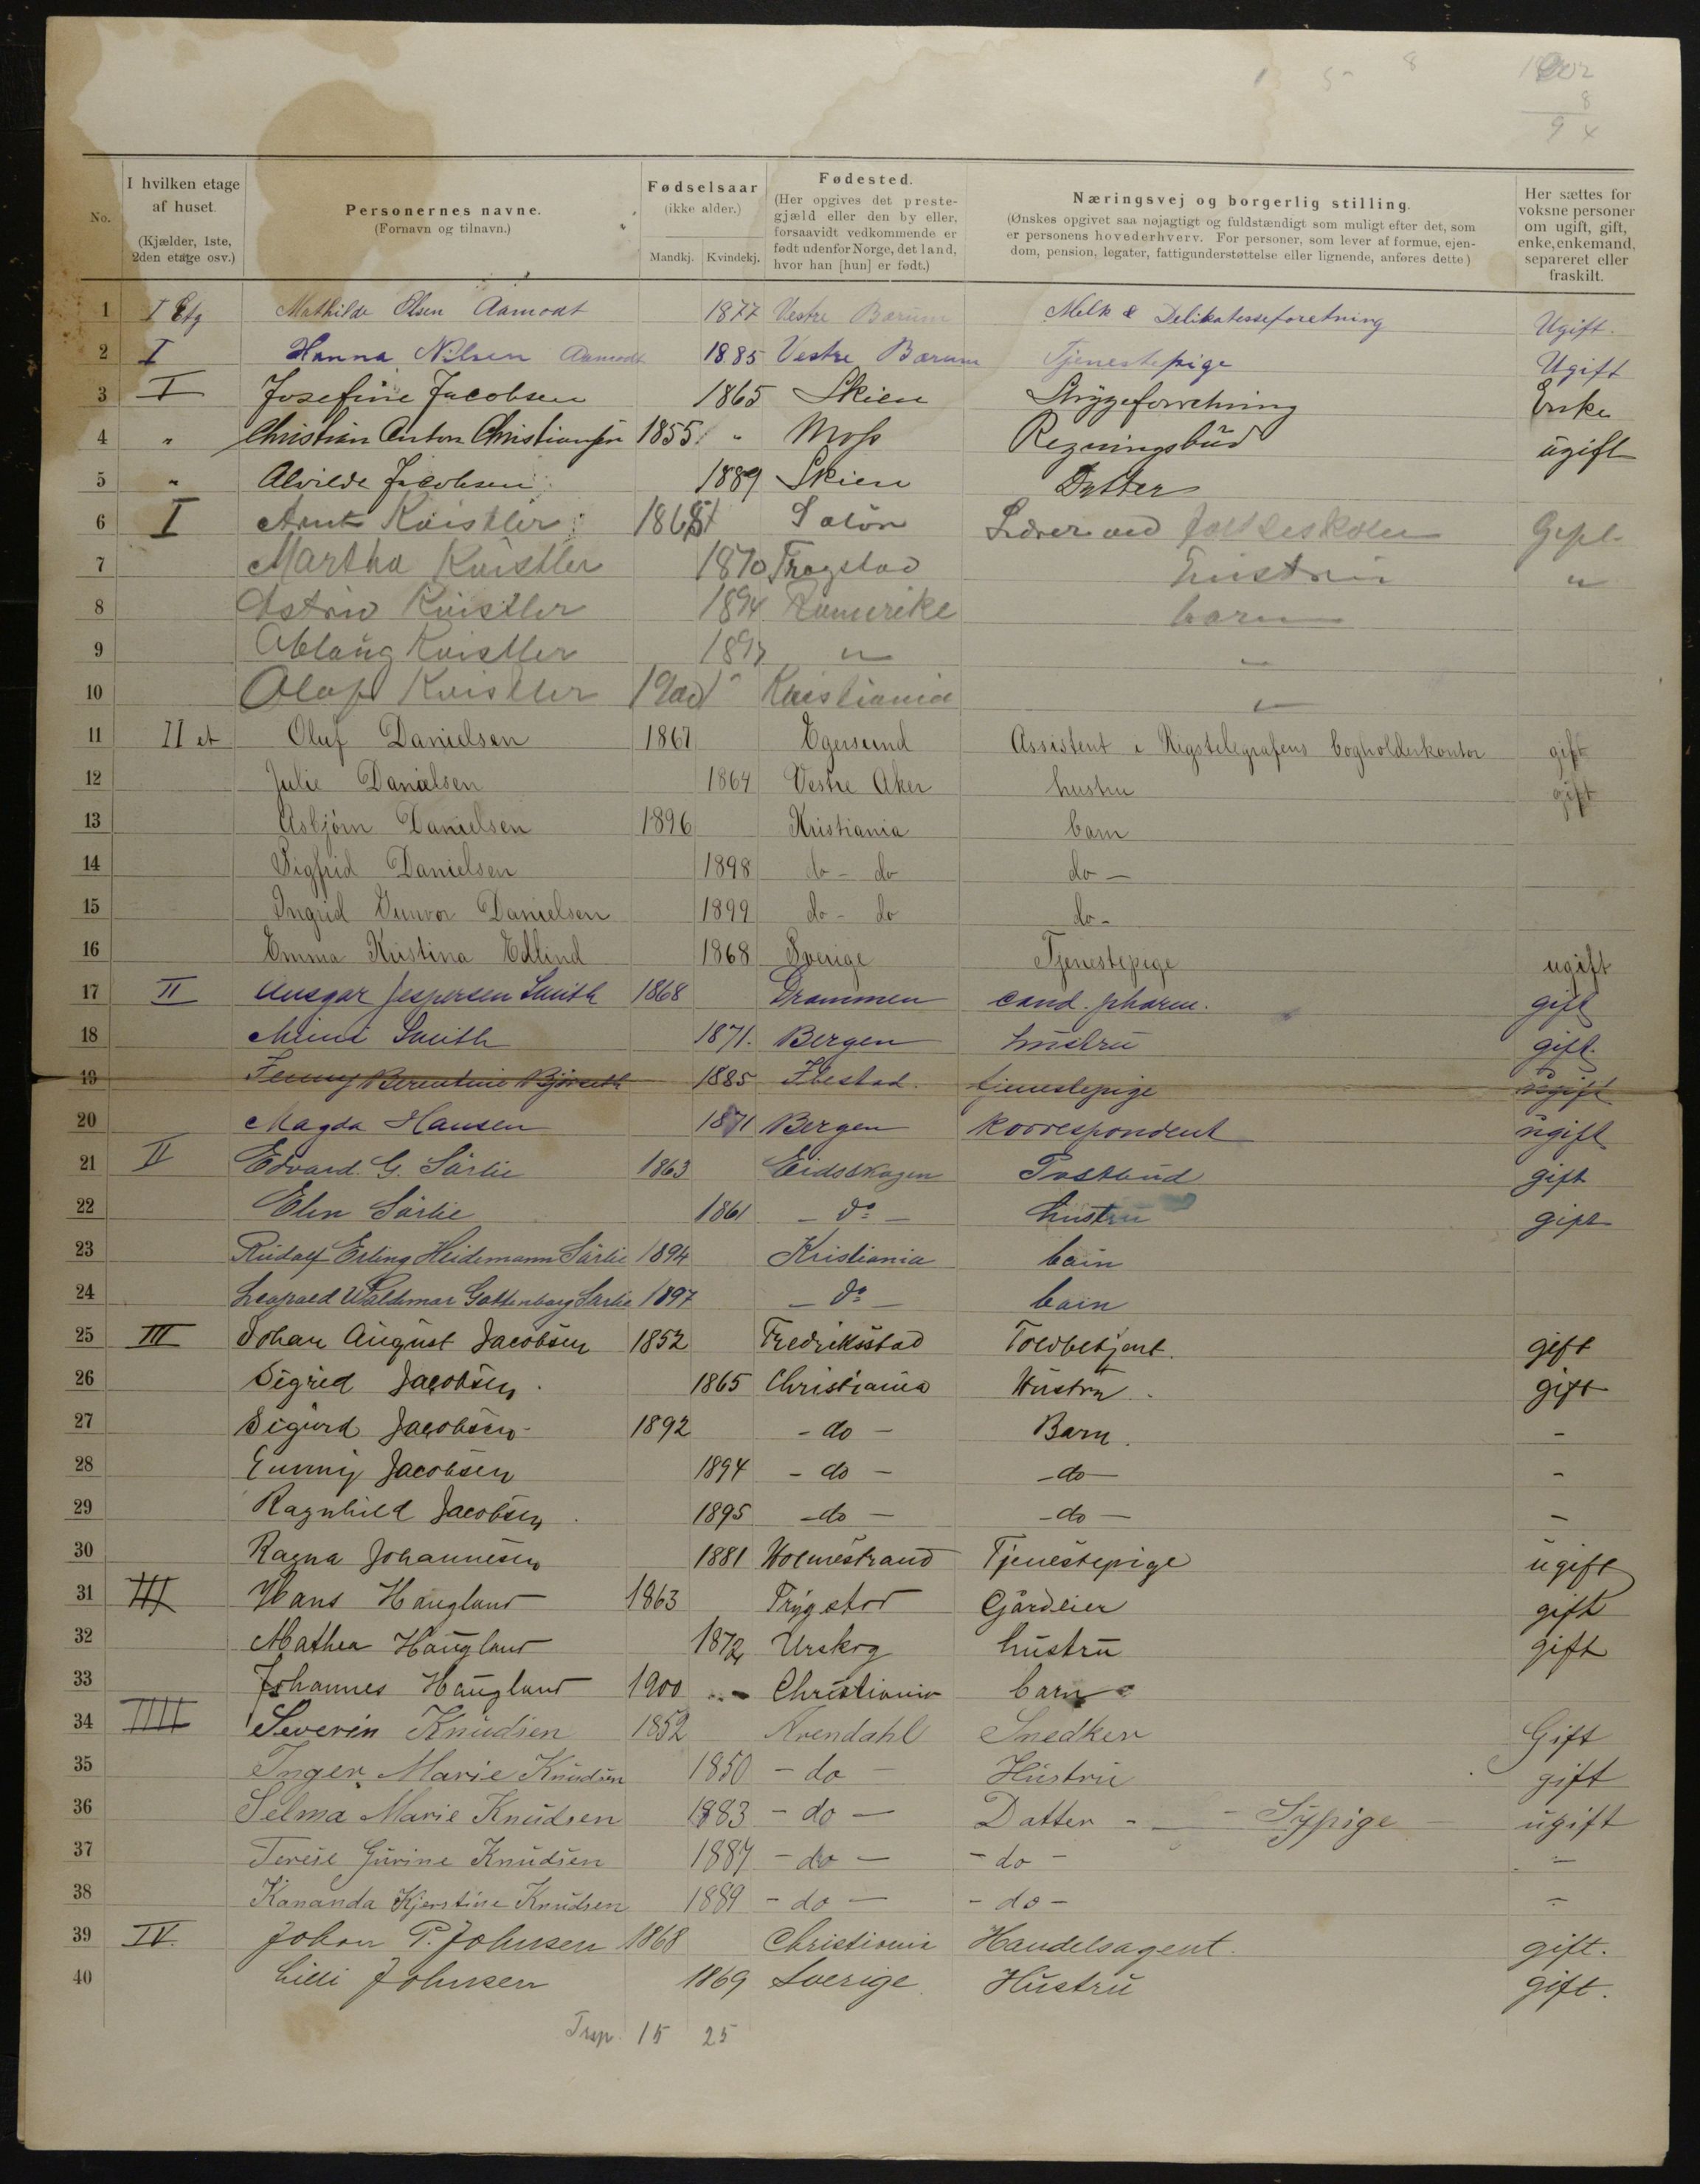 1 5 8 1902
8
9 4
No. I hvilken etage af huset. (Kjælder, 1ste, 2den etage osv.) Personernes navne. (Fornavn og tilnavn.) Fødselsaar (ikke alder.) Mandkj. Kvindekj. Fødested. (Her opgives det prestegjæld eller den by eller, forsaavidt vedkommende er født udenfor Norge, det land, hvor han [hun] er født.) Næringsvej og borgerlig stilling. (Ønskes opgivet saa nøjagtigt og fuldstændigt som muligt efter det, som er personens hovederhverv. For personer, som lever af formue, ejendom, pension, legater, fattigunderstøttelse eller lignende, anføres dette) Her sættes for voksne personer om ugift, gift, enke, enkemand, separeret eller fraskilt.
1 I Etg Mathilde Olsen Aamodt 1877 Vestre Bærum Melk & Delikatesseforetning Ugift.
2 I Hanna Nilsen Aamodt 1885 Vestre Bærum Tjenestepige Ugift
3 I Josefine Jacobsen 1865 Skien Strygeforretning Enke
4 " Christian Anton Christiansen 1855 " Moss Regningsbud ugift
5 " Alvilde Jacobsen 1889 Skien Datter
6 I Arnt Kvistler 1865 Solør Lærer ved folkeskolen Gift
7 Martha Kvistler 1870 Trøgstad Hustru "
8 Astrid Kvistler 1894 Romerike barn
9 Aslaug Kvistler 1897 " "
10 Olaf Kvistler 1900 Kristiania "
11 II et Oluf Danielsen 1867 Egersund Assistent i Rigstelegrafens bogholderkontor gift
12 Julie Danielsen 1864 Vestre Aker hustru gift
13 Asbjørn Danielsen 1896 Kristiania barn
14 Sigfrid Danielsen 1898 do - do do -
15 Ingrid Gunvor Danielsen 1899 do - do do -
16 Emma Kristina Edlind 1868 Sverige Tjenestepige ugift
17 II Ansgar Jespersen Smith 1868 Drammen cand. pharm. gift
18 Mimi Smith 1871. Bergen hustru gift.
19 Fenny Berentine Bjørseth 1885 Ibestad. tjenestepige ugift
20 Magda Hansen 1871 Bergen Korrespondent ugift
21 II Edvard G. Sørlie 1863 Eidsskogen Postbud gift
22 Elen Sørlie 1861 - do - hustru gift
23 Rudolf Erling Heidemann Sørlie 1894 Kristiania barn
24 Leopold Waldemar Gottenborg Sørlie 1897 - do - barn
25 III Johan August Jacobsen 1852 Fredriksstad Toldbetjent. gift
26 Sigrid Jacobsen. 1865 Christiania Hustru. gift
27 Sigurd Jacobsen 1892 - do - Barn. -
28 Jacobsen 1894 - do - - do - -
29 Ragnhild Jacobsen. 1895 - do - - do - -
30 Ragna Johannesen 1881 Holmestrand Tjenestepige ugift
31 III Hans Haugland 1863 Trygstad Gårdeier gift
32 Mathea Haugland 1872 Urskog hustru gift
33 Johannes Haugland 1900 Christiania barn
34 IIII Severin Knudsen 1852 Arendahl Snedker Gift
35 Inger Marie Knudsen 1850 - do - Hustru gift
36 Selma Marie Knudsen 1883 - do - Datter - - Sypige - ugift
37 Terese Gurine Knudsen 1887 - do - - do - -
38 Kananda Kjerstine Knudsen 1889 - do - - do - -
39 IV. Johan P. Johnsen 1868 Christiania Handelsagent. gift.
40 Lilli Johnsen 1869 Sverige Hustru gift.
Trsp. 15 25